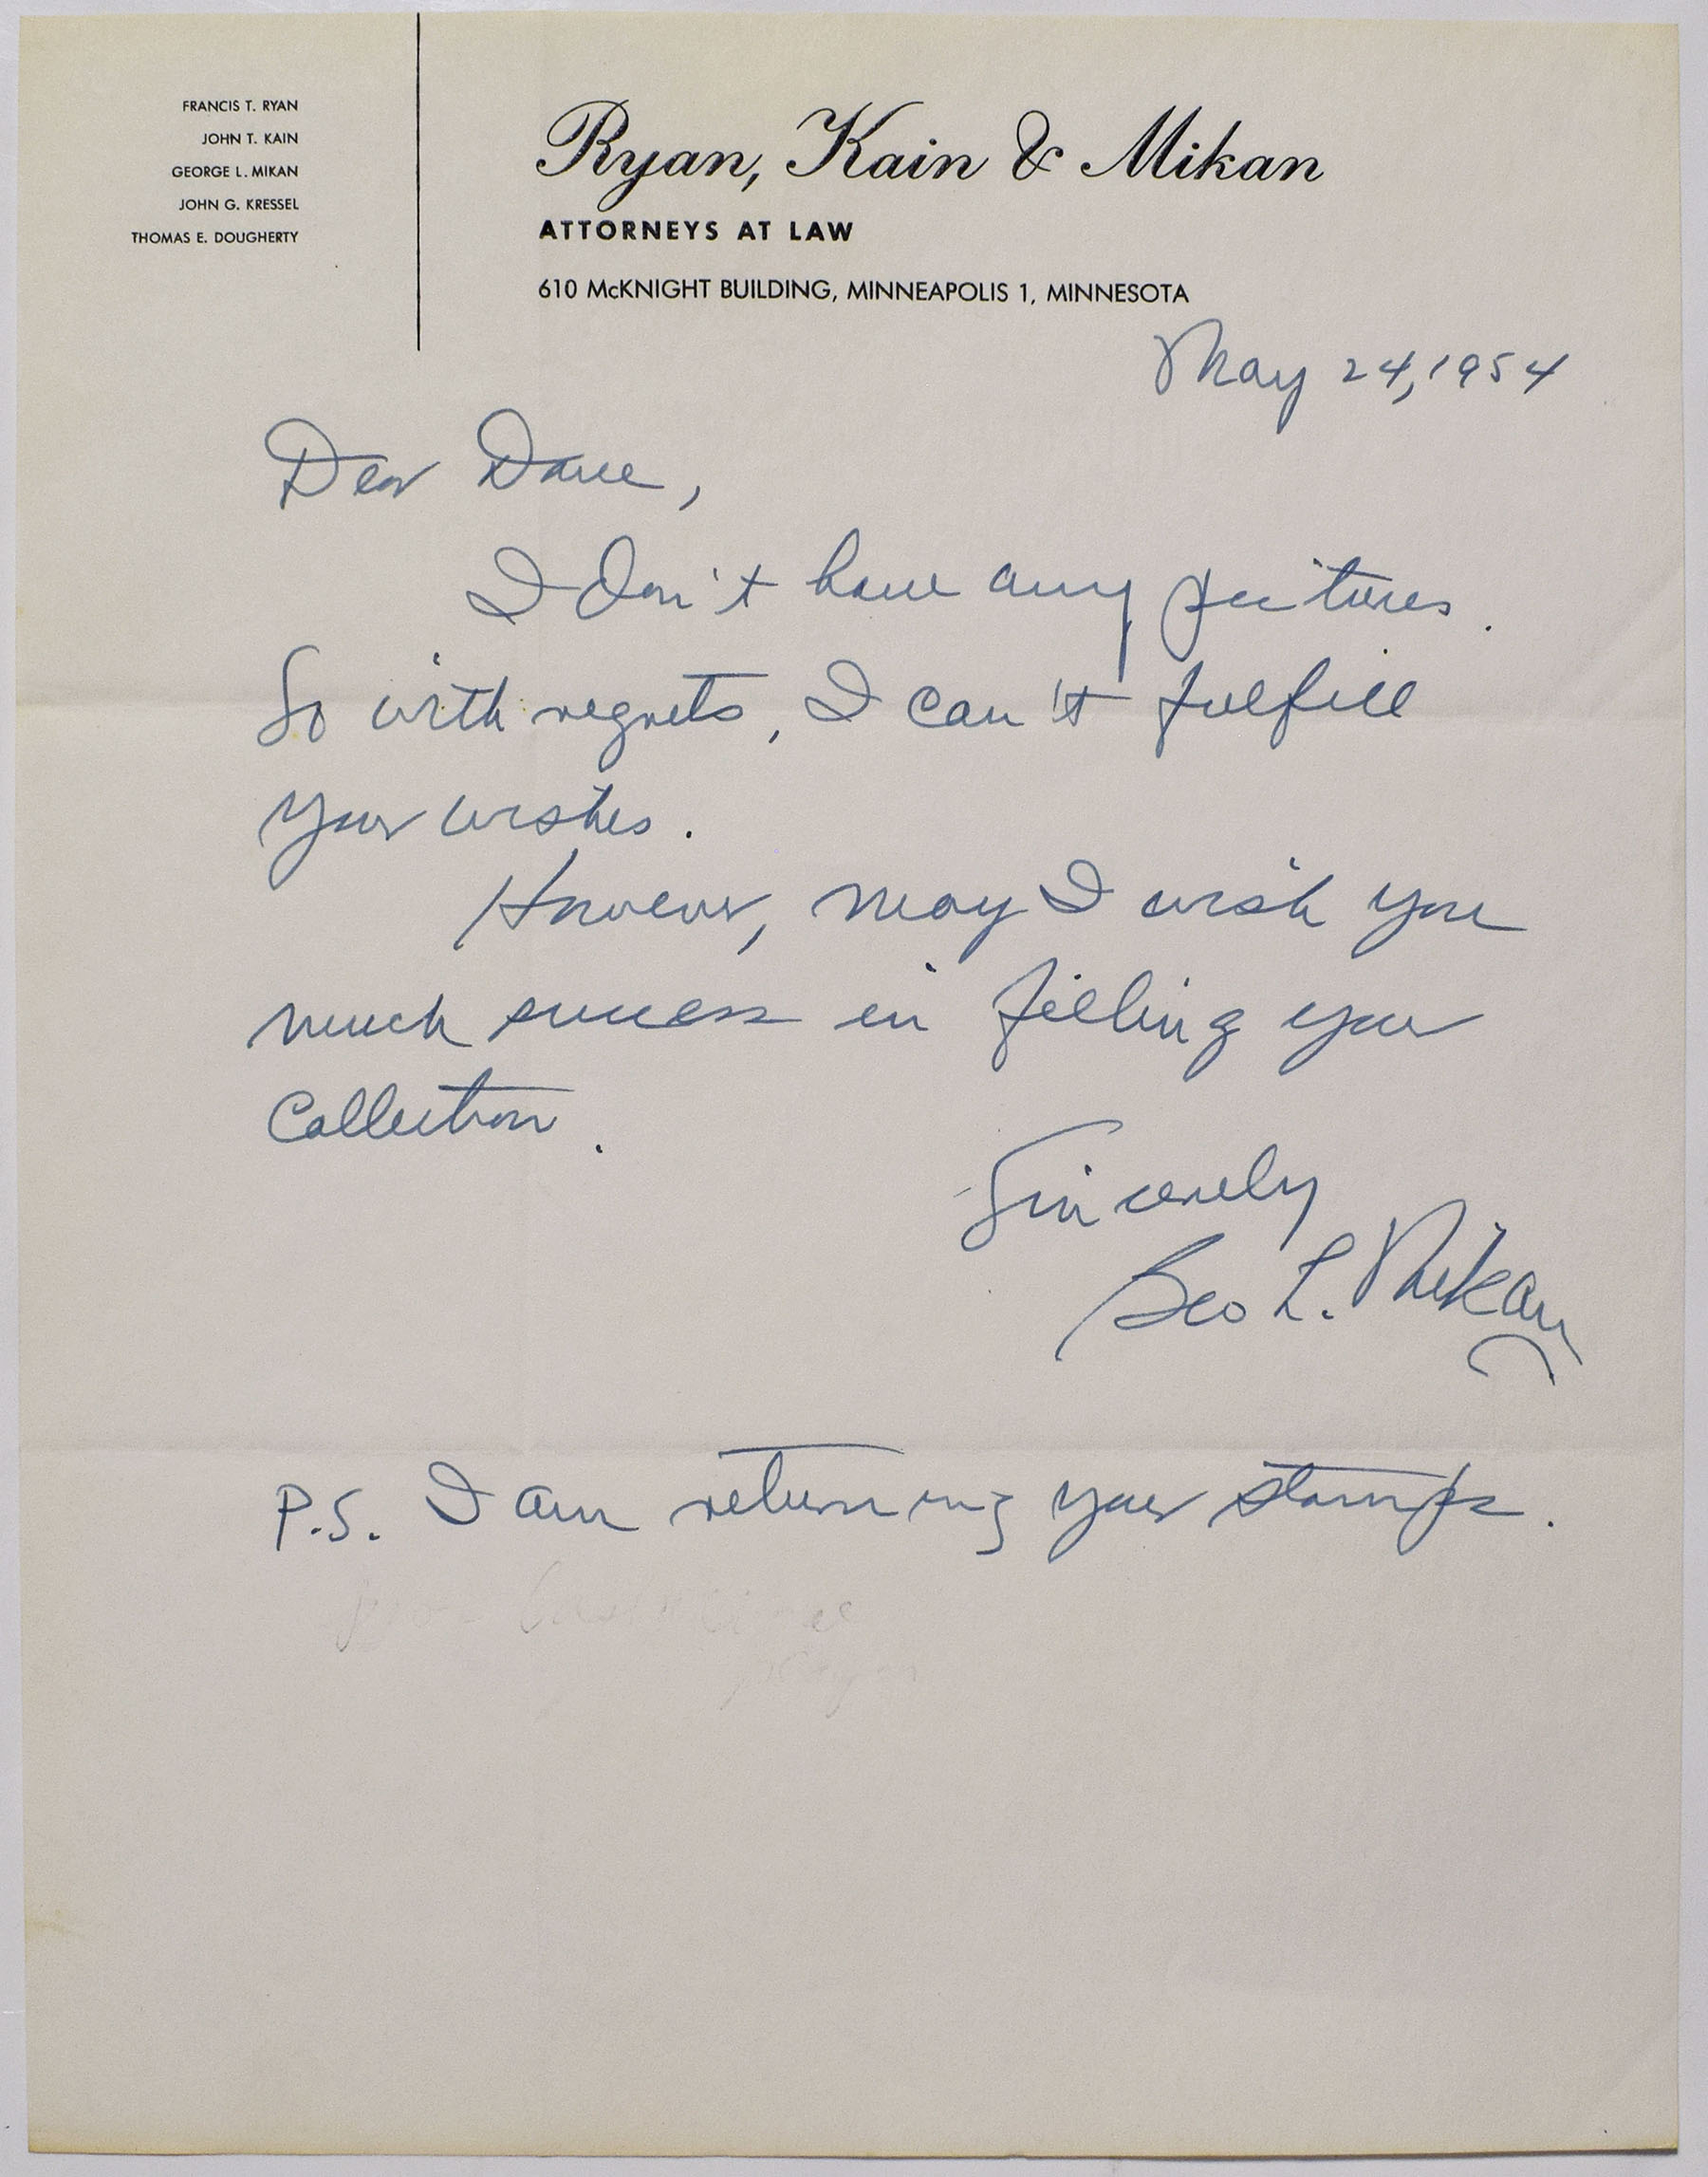 FRANCIS T. RYAN
JOHN T. KAIN
GEORGE L. MIKAN
JOHN G. KRESSEL
THOMAS E. DOUGHERTY
Ryan, Kain & Mikan
ATTORNEYS AT LAW
610 McKNIGHT BUILDING, MINNEAPOLIS 1, MINNESOTA
May 24, 1954
Dear Dave,
I don't have any pictures.
So with regrets, I can't fulfill
your wishes.
However, may I wish you
much success in filling your
Collection.
Sincerely
Geo L. Mikan
P.S. I am returning your stamps.